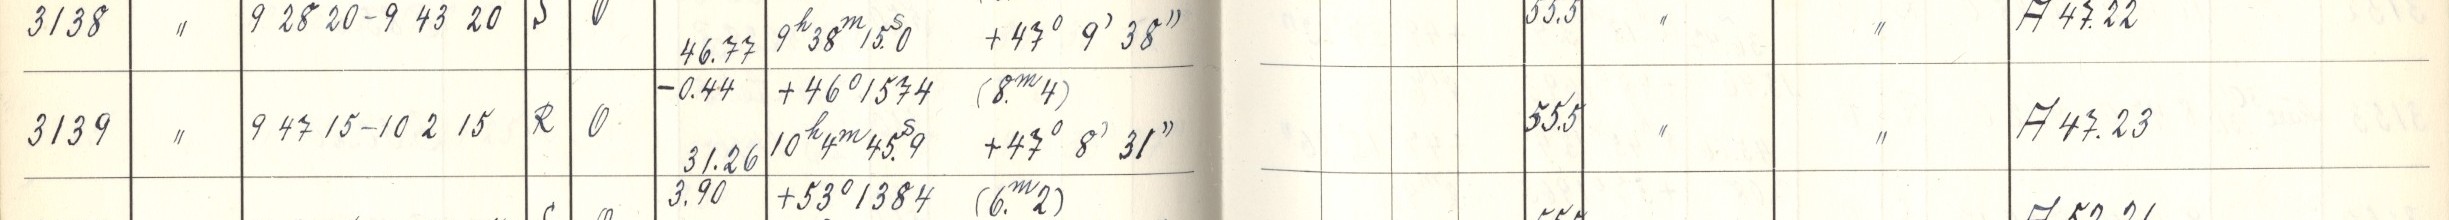 3138 " 9 28 20 - 9 43 20 S O 46.77 9h 38m 15s.0 +47° 9' 38" 55.5 " " A 47.22
-0.44 +46° 1574 (8.m4)
3139 " 9 47 15 - 10 2 15 R O 55.5 " " A 47.23
31.26 10h 4m 45s.9 +47° 8' 31"
3.90 +53° 1384 (6.m2)